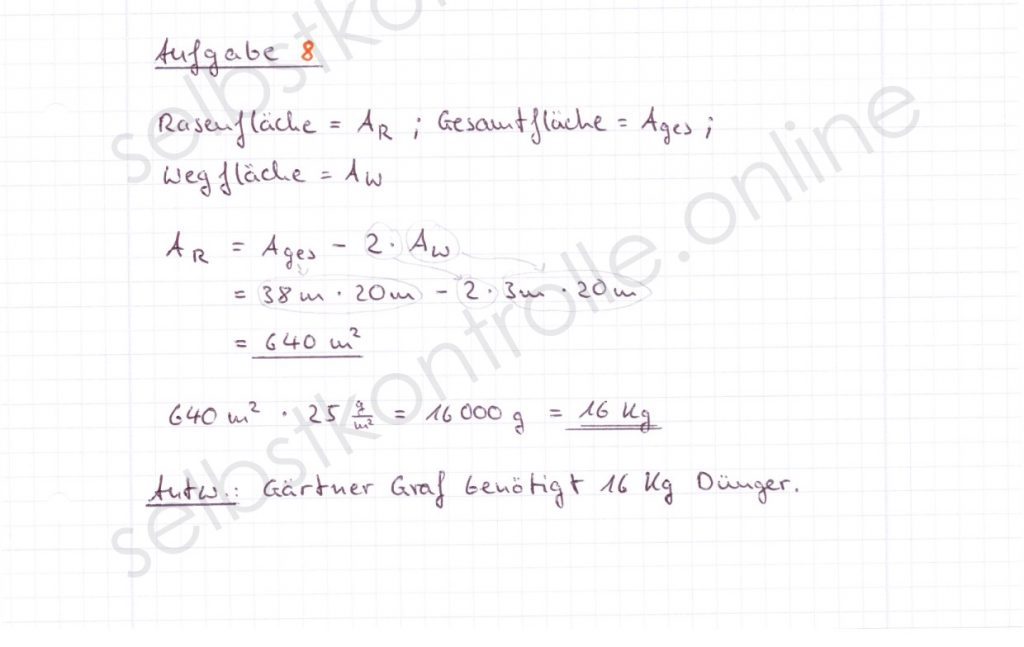 Aufgabe 8
Rasenfläche = A_R ; Gesamtfläche = A_ges ;
Wegfläche = A_W
A_R = A_ges - 2 · A_W
= 38 m · 20 m - 2 · 3 m · 20 m
= 640 m²
640 m² · 25 g/m² = 16 000 g = 16 Kg
Antw.: Gärtner Graf benötigt 16 Kg Dünger.
selbstkontrolle.online
selbstko